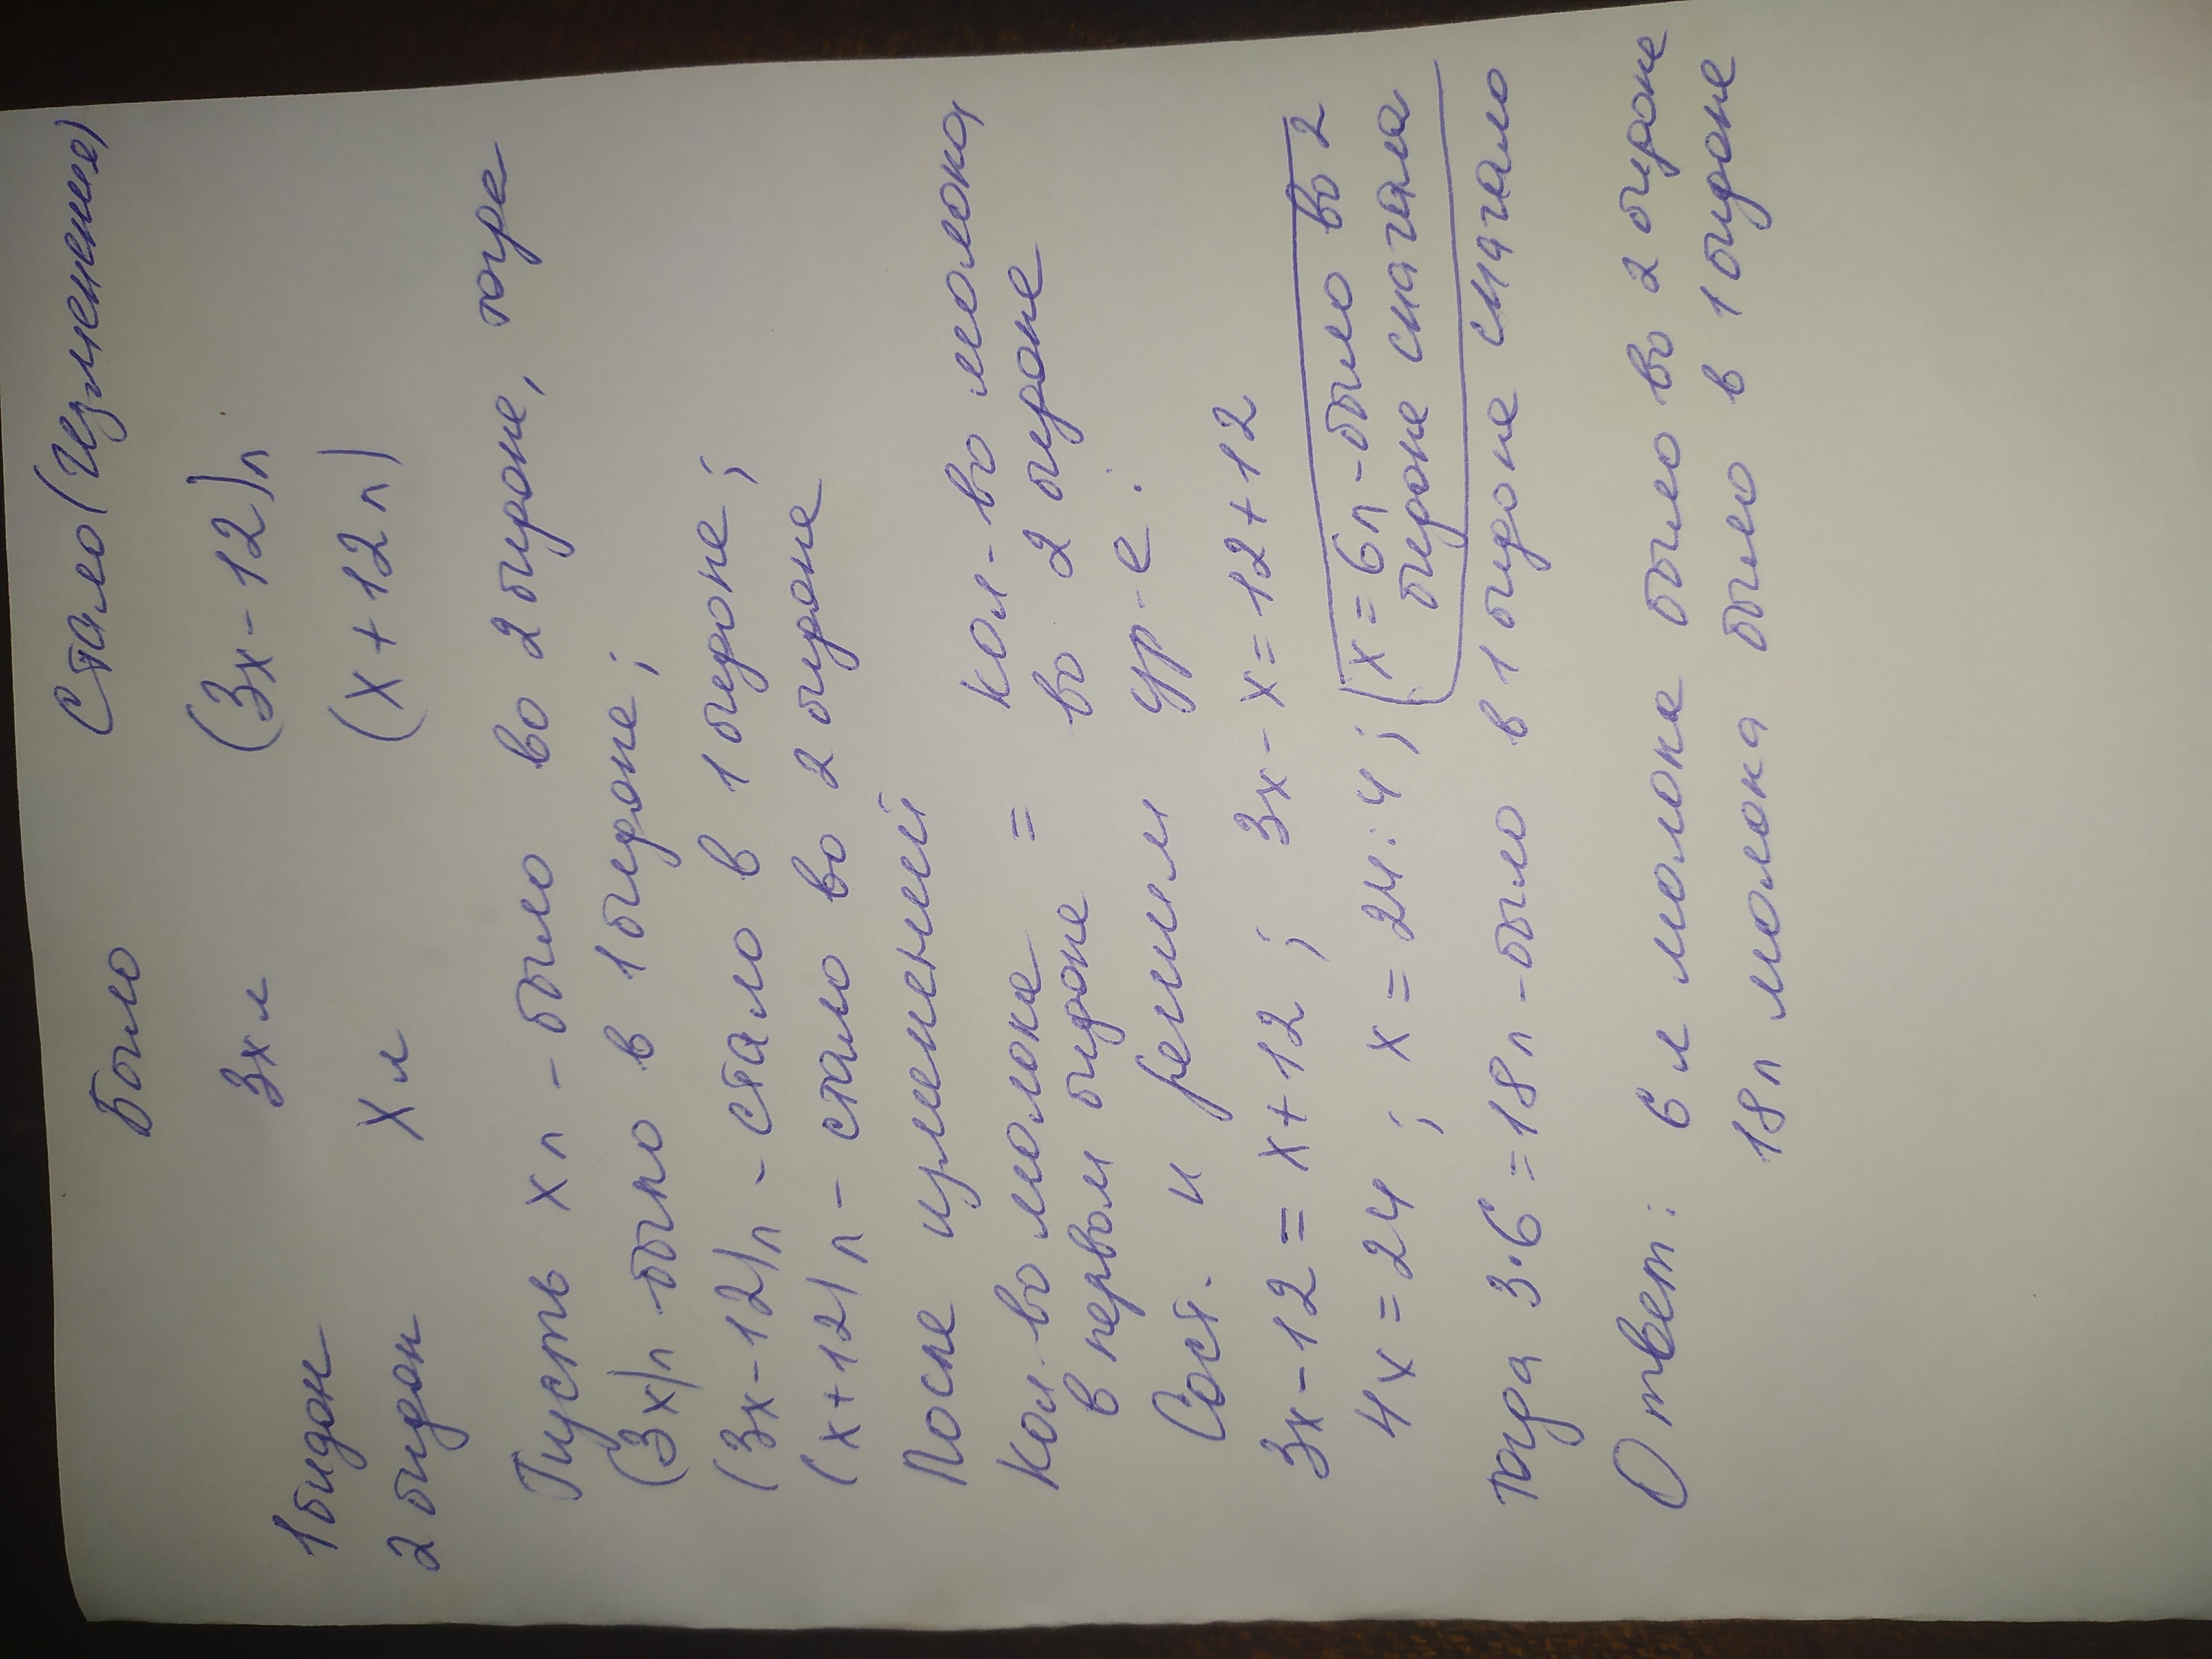 Было Стало (Изменение)
1 бидон 3х л (3х-12)л
2 бидон х л (х+12л)
Пусть хл - было во 2 бидоне, тогда
(3х)л было в 1 бидоне;
(3х-12)л - стало в 1 бидоне;
(х+12)л - стало во 2 бидоне
После изменений
кол-во молока = кол-во молока
в первом бидоне во 2 бидоне
Сост. и решим ур-е:
3х-12=х+12; 3х-х=12+12
4х=24; х=24:4; х=6л-было во 2
бидоне сначала
тогда 3·6=18л-было в 1 бидоне сначало
Ответ: 6 л молока было во 2 бидоне
18л молока было в 1 бидоне